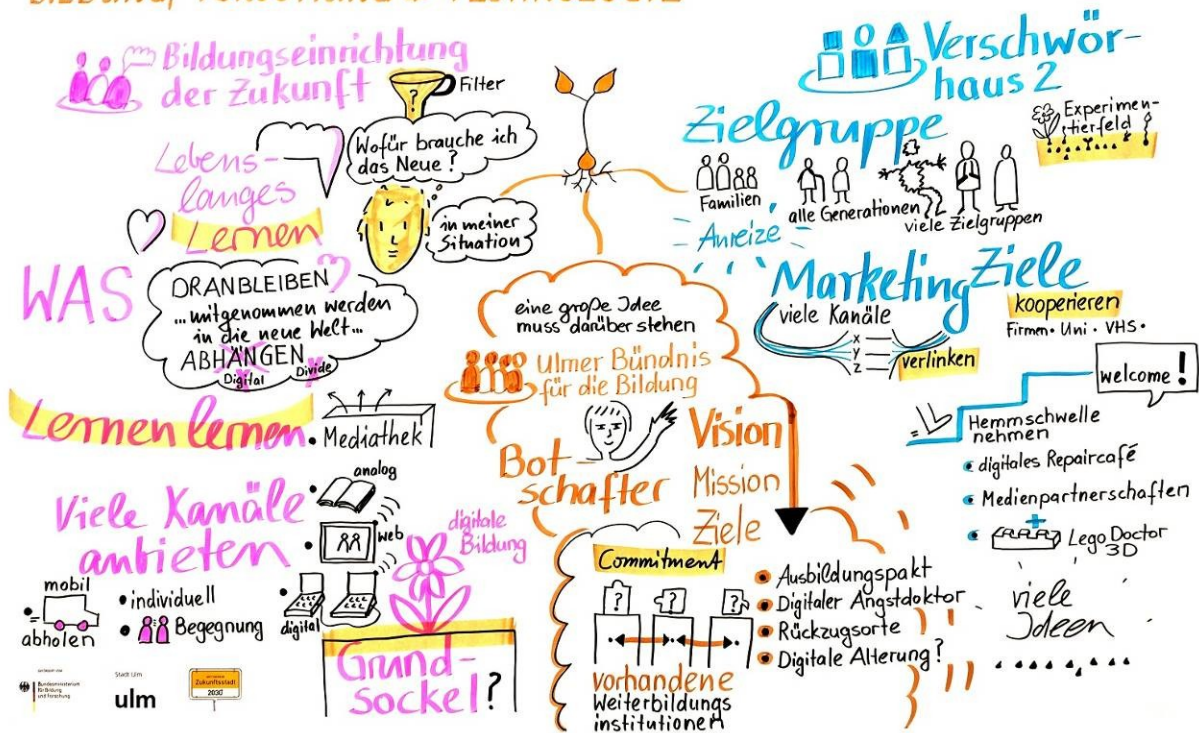 Bildungseinrichtung
der Zukunft
?
Filter
Wofür brauche ich
das Neue?
Lebens-
langes
Lernen
in meiner
Situation
WAS
DRANBLEIBEN
...mitgenommen werden
in die neue Welt...
ABHÄNGEN
Digital Divide
Lernen lernen
• Mediathek
Viele Kanäle
anbieten
analog
web
digital
mobil
abholen
• individuell
• Begegnung
digitale
Bildung
Grund-
sockel?
Bundesministerium
für Bildung
und Forschung
Stadt Ulm
ulm
Zukunftsstadt
2030
eine große Idee
muss darüber stehen
Ulmer Bündnis
für die Bildung
Bot-
schafter
Vision
Mission
Ziele
Commitment
? ? ?
vorhandene
Weiterbildungs
institutionen
• Ausbildungspakt
• Digitaler Angstdoktor
• Rückzugsorte
• Digitale Alterung?
Verschwör-
haus 2
Zielgruppe
Experimen-
tierfeld
Familien
alle Generationen
viele Zielgruppen
Anreize
Marketing
viele Kanäle
x
y
z
verlinken
Ziele
kooperieren
Firmen · Uni · VHS ·
welcome!
Hemmschwelle
nehmen
• digitales Repaircafé
• Medienpartnerschaften
• Lego Doctor
3D
viele
Ideen